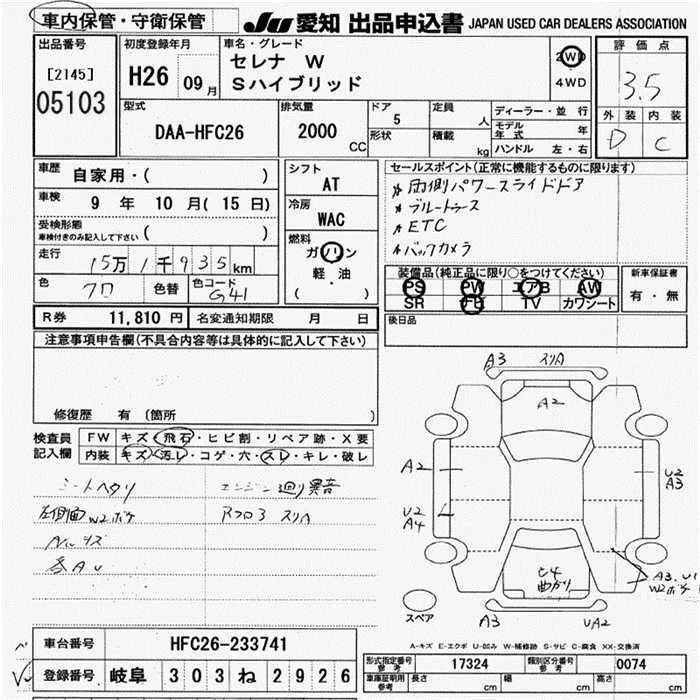 車内保管・守衛保管
JU 愛知 出品申込書 JAPAN USED CAR DEALERS ASSOCIATION
出品番号
[2145]
05103
初度登録年月
H26 09月
車名・グレード
セレナ W
Sハイブリッド
2WD
4WD
評価点
3.5
外装 内装
D C
型式
DAA-HFC26
排気量
2000 CC
ドア 5
形状
定員 人
積載 kg
ディーラー・並行
モデル年式 年
ハンドル 左・右
車歴 自家用・( )
車検 9 年 10 月( 15 日)
受検形態
車検付きのみ記入して下さい ( )
走行 15万1千935km
色 クロ 色替 色コード G41
シフト
AT
冷房
WAC
燃料
ガソリン
軽・油
( )
セールスポイント(正常に機能するものに限ります)
両側パワースライドドア
ブルートゥース
ETC
バックカメラ
装備品(純正品に限り○をつけてください)
PS PW エアB AW
SR ナビ TV カワシート
新車保証書
有・無
R券 11,810 円 名変通知期限 月 日
後日品
注意事項申告欄(不具合内容等は具体的に記入して下さい)
修復歴 有 〔箇所 〕
検査員
記入欄
FW キズ・飛石・ヒビ割・リペア跡・X要
内装 キズ・汚レ・コゲ・穴・スレ・キレ・破レ
シートヘタリ エンジン廻り異音
左側面W2ボケ Rフロア スリA
各AU
A3 スリA
A2
A2
U2
A3
U2
A4
曲がり
A3.U1
W2ボケ
A3 UA2
スペア
A-キズ E-エクボ U-凹み W-補修跡 S-サビ C-腐食 XX-交換済
車台番号 HFC26-233741
登録番号 岐阜 303 ね 2926
形式指定番号 参考 17324 類別区分番号 参考 0074
車庫証明用 参考 長さ cm 幅 cm 高さ cm